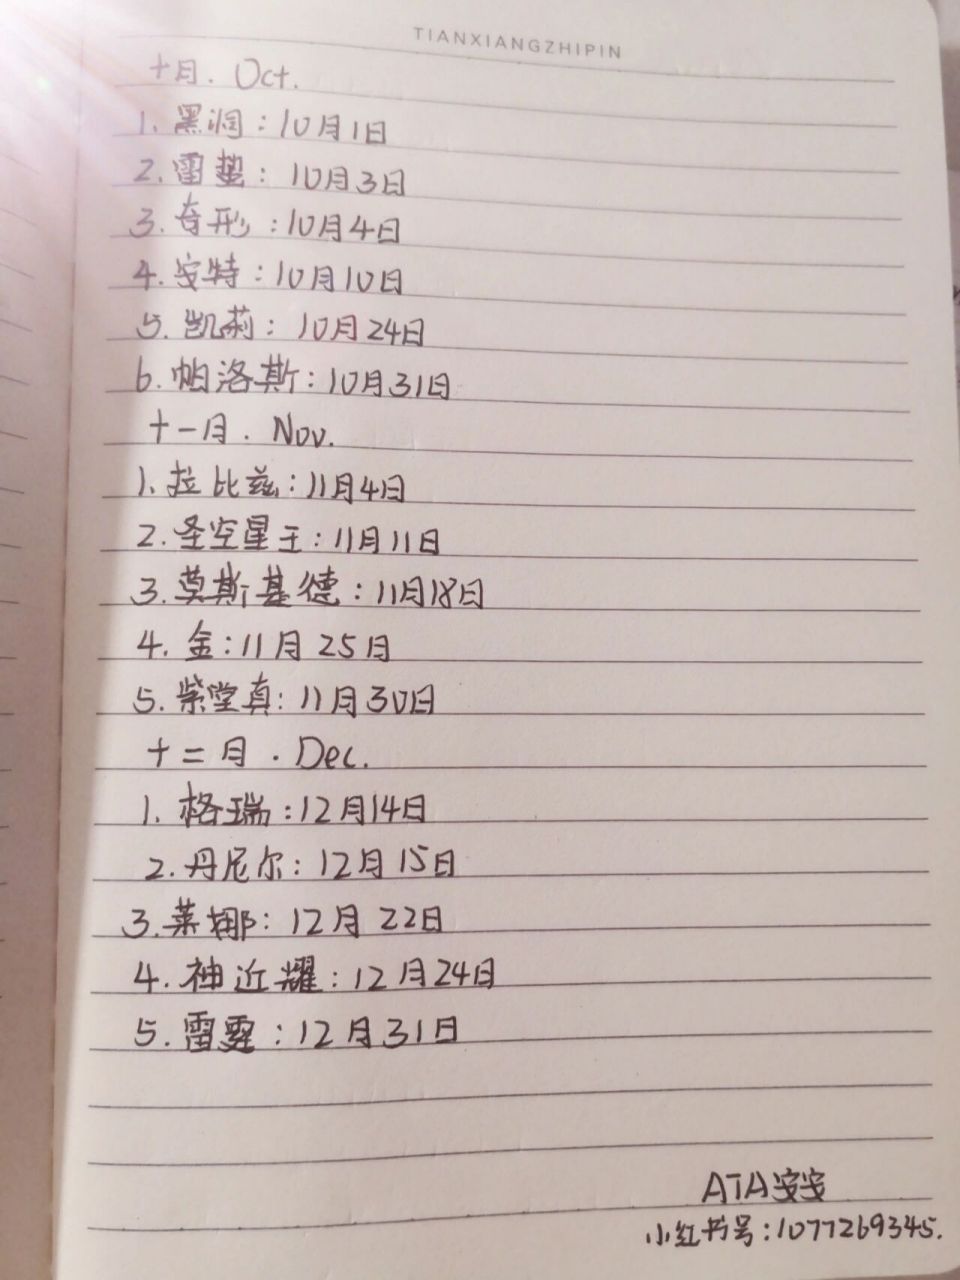 TIANXIANGZHIPIN
十月. Oct.
1. 黑洞:10月1日
2. 雷蛰:10月3日
3. 奇形:10月4日
4. 安特:10月10日
5. 凯莉:10月24日
6. 帕洛斯:10月31日
十一月. Nov.
1. 拉比兹:11月4日
2. 圣空星王:11月11日
3. 莫斯基德:11月18日
4. 金:11月25日
5. 紫堂真:11月30日
十二月. Dec.
1. 格瑞:12月14日
2. 丹尼尔:12月15日
3. 莱娜:12月22日
4. 神近耀:12月24日
5. 雷霆:12月31日
ATA安安
小红书号:1077269345.